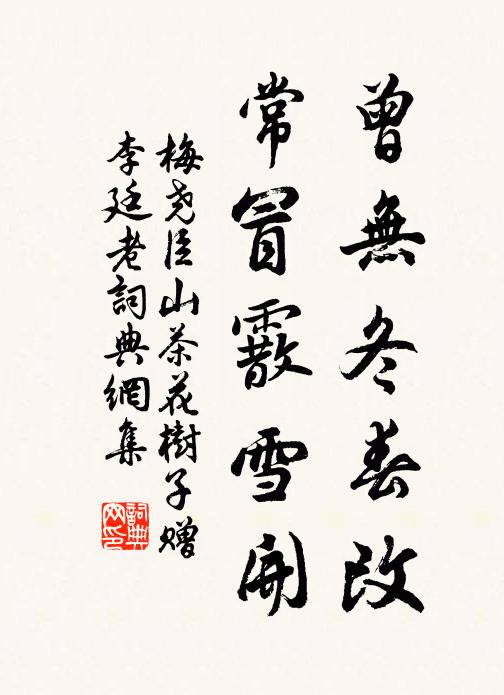 曾無冬春改
常冒霰雪開
梅尧臣山茶花樹子赠
李廷老詞典網集
詞典網印